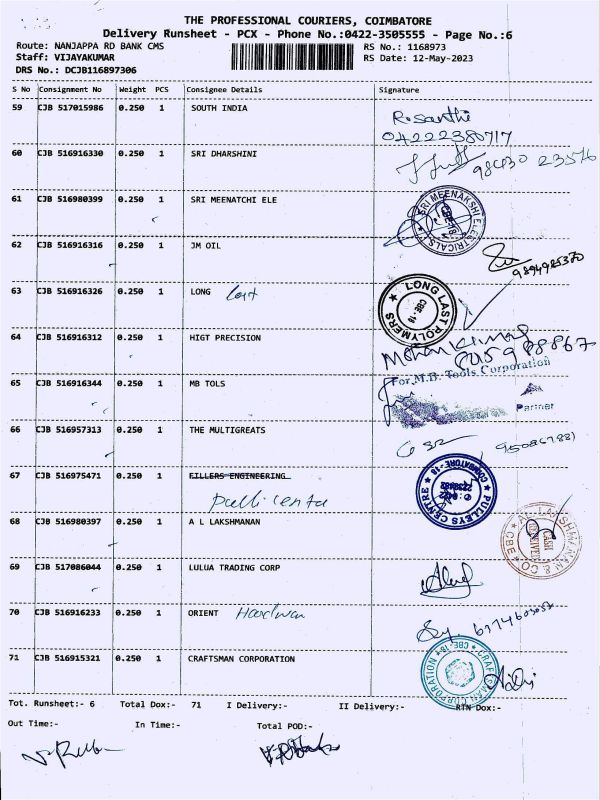 THE PROFESSIONAL COURIERS, COIMBATORE
Delivery Runsheet - PCX - Phone No.:0422-3505555 - Page No.:6
Route: NANJAPPA RD BANK CMS RS No.: 1168973
Staff: VIJAYAKUMAR RS Date: 12-May-2023
DRS No.: DCJB116897306
S No Consignment No Weight PCS Consignee Details Signature
59 CJB 517015986 0.250 1 SOUTH INDIA
04222380717
60 CJB 516916330 0.250 1 SRI DHARSHINI
61 CJB 516980399 0.250 1 SRI MEENATCHI ELE
SRI MEENAKSHI ELECTRICALS CBE-18
62 CJB 516916316 0.250 1 JM OIL
9894985370
63 CJB 516916326 0.250 1 LONG Last
LONG LAST POLYMERS CBE-18
64 CJB 516916312 0.250 1 HIGT PRECISION
Mohan Kumar
65 CJB 516916344 0.250 1 MB TOLS
For M.B. Tools Corporation
Partner
66 CJB 516957313 0.250 1 THE MULTIGREATS
67 CJB 516975471 0.250 1 FILLERS ENGINEERING
PULLEYS CENTRE COIMBATORE-18
68 CJB 516980397 0.250 1 A L LAKSHMANAN
A.L. LAKSHMANAN & CO CBE
69 CJB 517086044 0.250 1 LULUA TRADING CORP
70 CJB 516916233 0.250 1 ORIENT Hardware
71 CJB 516915321 0.250 1 CRAFTSMAN CORPORATION
CRAFTSMAN CORPORATION CBE-18
Tot. Runsheet:- 6 Total Dox:- 71 I Delivery:- II Delivery:- RTN Dox:-
Out Time:- In Time:- Total POD:-